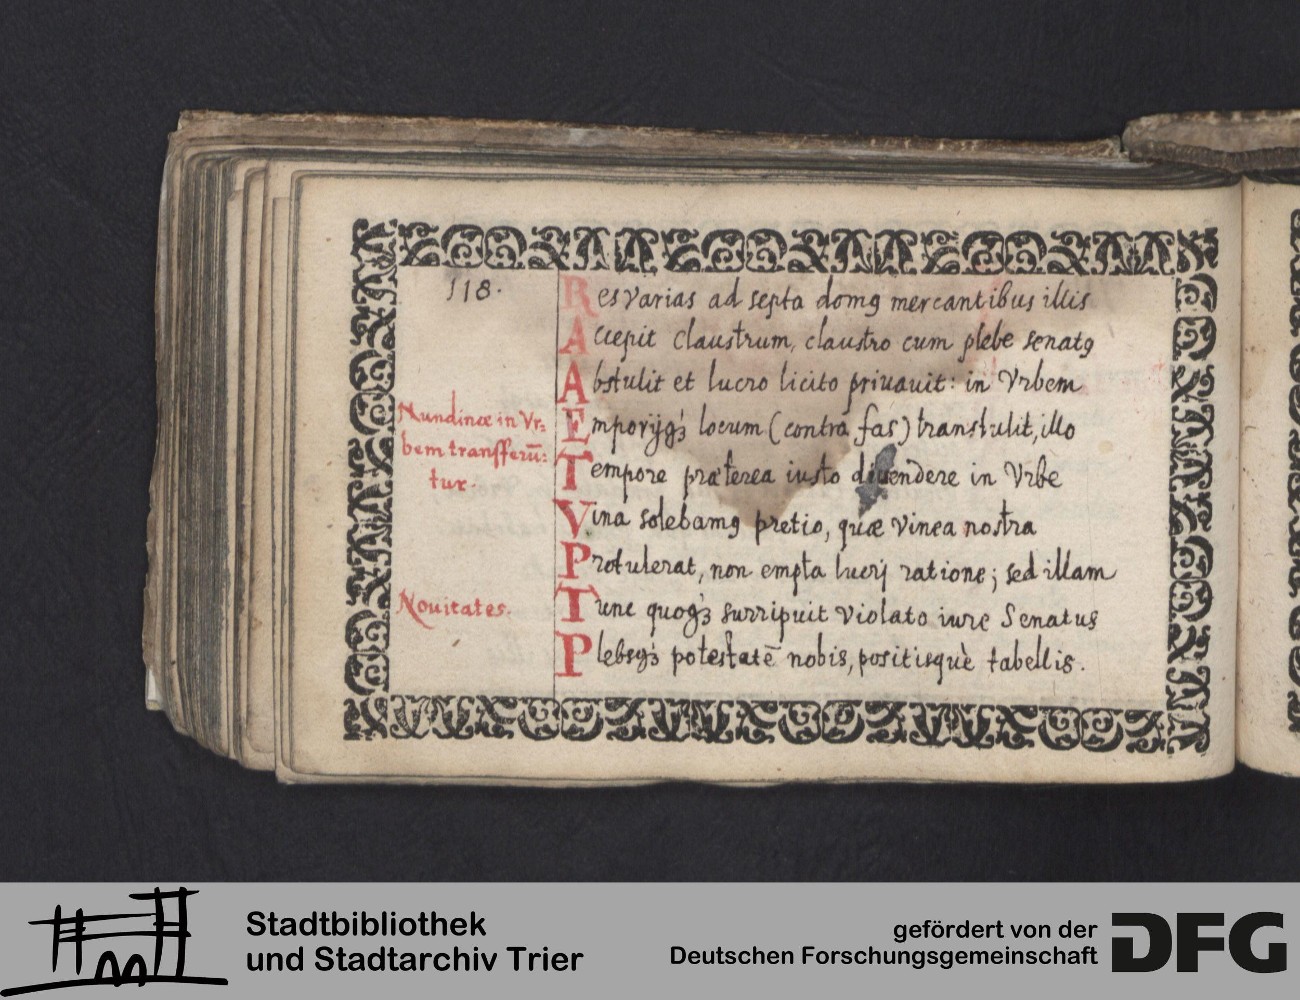 118.
Res varias ad septa domꝯ mercantibus illis
Accepit claustrum, claustro cum plebe senatꝯ
Abstulit et lucro licito priuauit: in Vrbem
Emporijqꝫ locum (contrà fas) transtulit, illo
Tempore præterea iusto diuendere in Vrbe
Vina solebamꝯ pretio, quæ vinea nostra
Protulerat, non empta lucrij ratione; sed illam
Tunc quoqꝫ surripuit violato iure Senatus
Plebsqꝫ potestatē nobis, positisquè tabellis.
Nundinæ in Vr=
bem transferū=
tur.
Nouitates.
Stadtbibliothek
und Stadtarchiv Trier
gefördert von der
Deutschen Forschungsgemeinschaft
DFG